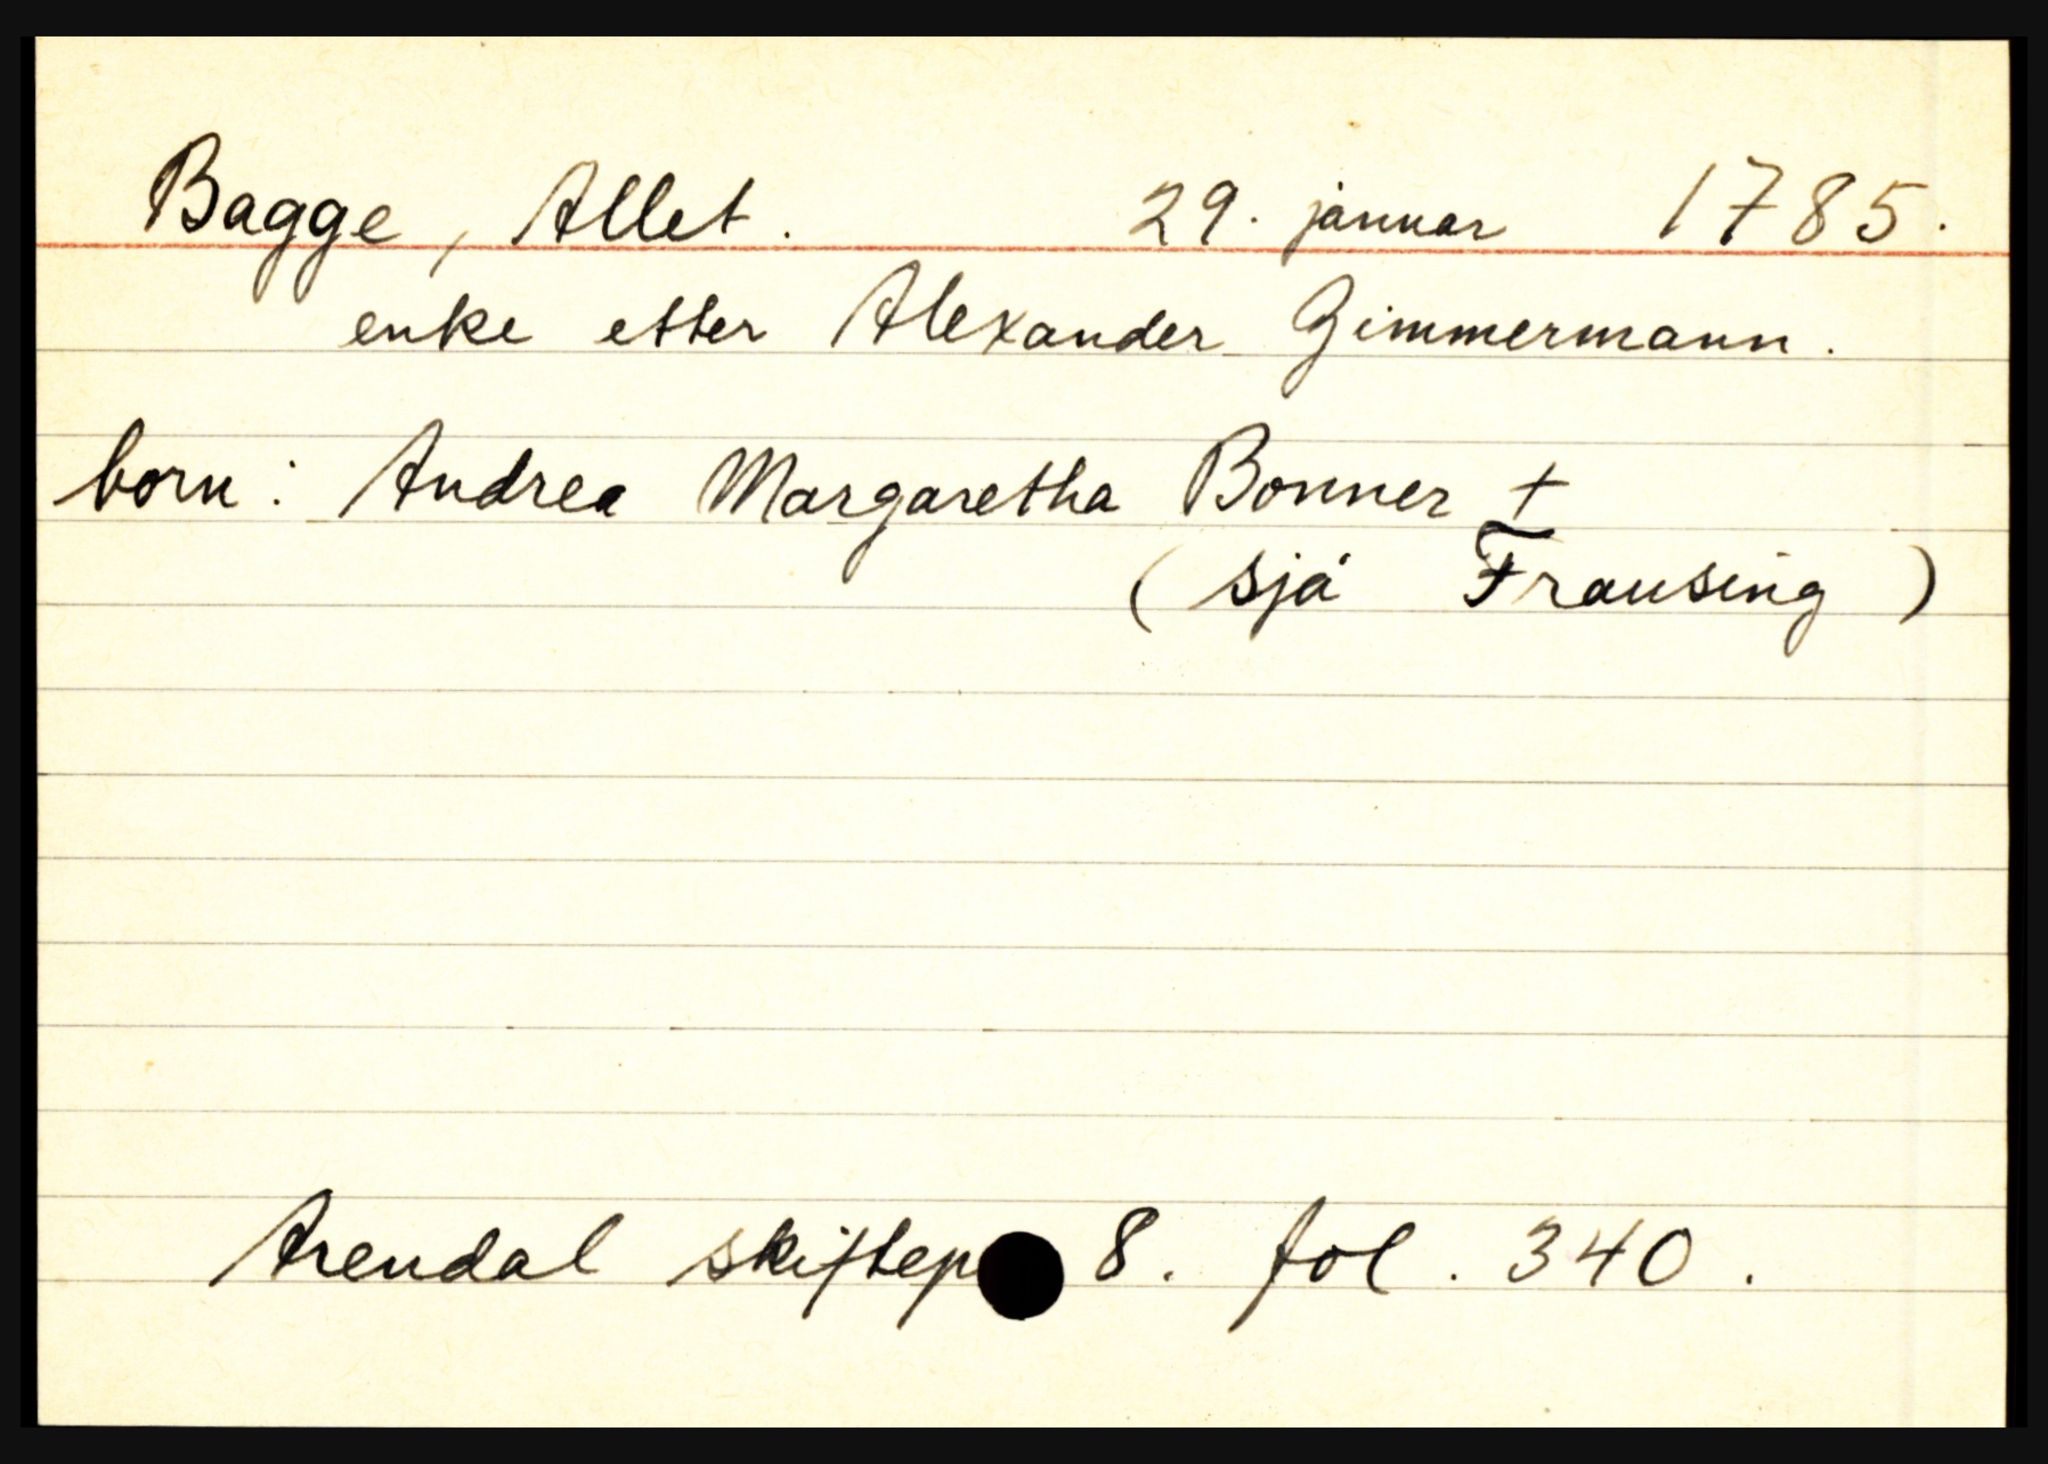 Bagge, Allet. 29. januar 1785.
enke etter Alexander Zimmermann.
born: Andrea Margaretha Bonner +
(sjå Frausing)
Arendal skiftep 8. fol. 340.